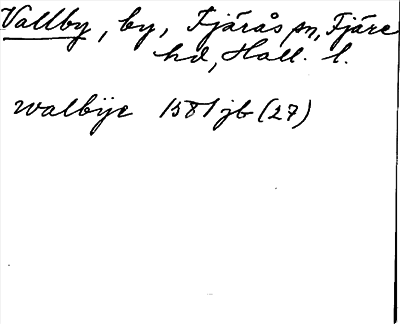 Vallby, by, Fjärås sn, Fjäre
hd, Hall. l.
walbÿe 1581 jb (27)